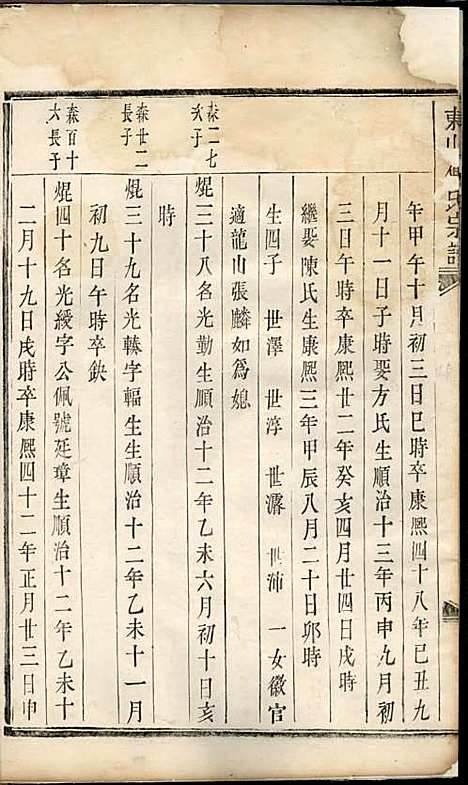 年甲午十月初三日巳時卒康熙四十八年己丑九
月十一日子時娶方氏生順治十三年丙申九月初
三日午時卒康熙廿二年癸亥四月廿四日戌時
繼娶陳氏生康熙三年甲辰八月二十日卯時
生四子 世澤 世淳 世潞 世沛 一女徽官
適龍山張麟如為媳
森二七次子
焜三十八名光勤生順治十二年乙未六月初十日亥
時
森廿二長子
焜三十九名光轃字輻生生順治十二年乙未十一月
初九日午時卒缺
森百十六長子
焜四十名光綬字公佩號廷章生順治十二年乙未十
二月十九日戌時卒康熙四十二年正月廿三日申
氏宗譜